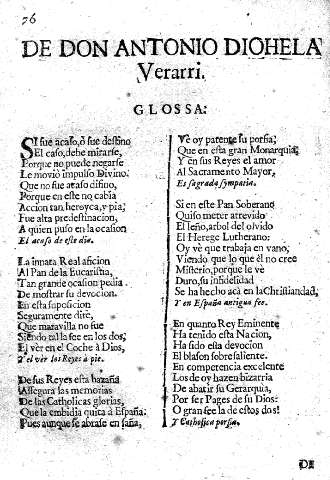 76
DE DON ANTONIO DIOHELA
Verarri.
GLOSSA:
SI fue acaso, ò fue destino
El caso, debe mirarse,
Porque no puede negarse
Le moviò impulso Divino.
Que no fue acaso disino,
Porque en este no cabia
Accion tan heroyca, y pia;
Fue alta predestinacion,
A quien puso en la ocasion
El acaso de este dia.
La innata Real aficion
Al Pan de la Eucaristia,
Tan grande ocasion pedia
De mostrar su devocion.
En esta suposicion
Seguramente diré,
Que maravilla no fue
Siendo tal la fee en los dos,
El vèr en el Coche à Dios,
Y el vèr los Reyes à pie.
De sus Reyes esta hazaña
Assegura las memorias
De las Catholicas glorias,
Que la embidia quita à España:
Pues aunque se abrase en saña,
Vè oy patente su porfia;
Que en esta gran Monarquia
Y en sus Reyes el amor
Al Sacramento Mayor,
Es sagrada sympatia.
Si en este Pan Soberano
Quiso meter atrevido
El leño, arbol del olvido
El Herege Lutherano;
Oy vè que trabaja en vano,
Viendo que lo que èl no cree
Misterio, porque le vè
Duro, su infidelidad
Se ha hecho acà en la Christiandad,
Y en España antigua fee.
En quanto Rey Eminente
Ha tenido esta Nacion,
Ha sido esta devocion
El blason sobresaliente.
En competencia excelente
Los de oy hazen bizarria
De abatir su Gerarquia,
Por ser Pages de su Dios:
O gran fee la de estos dos!
Y Catholica porfia.
DE